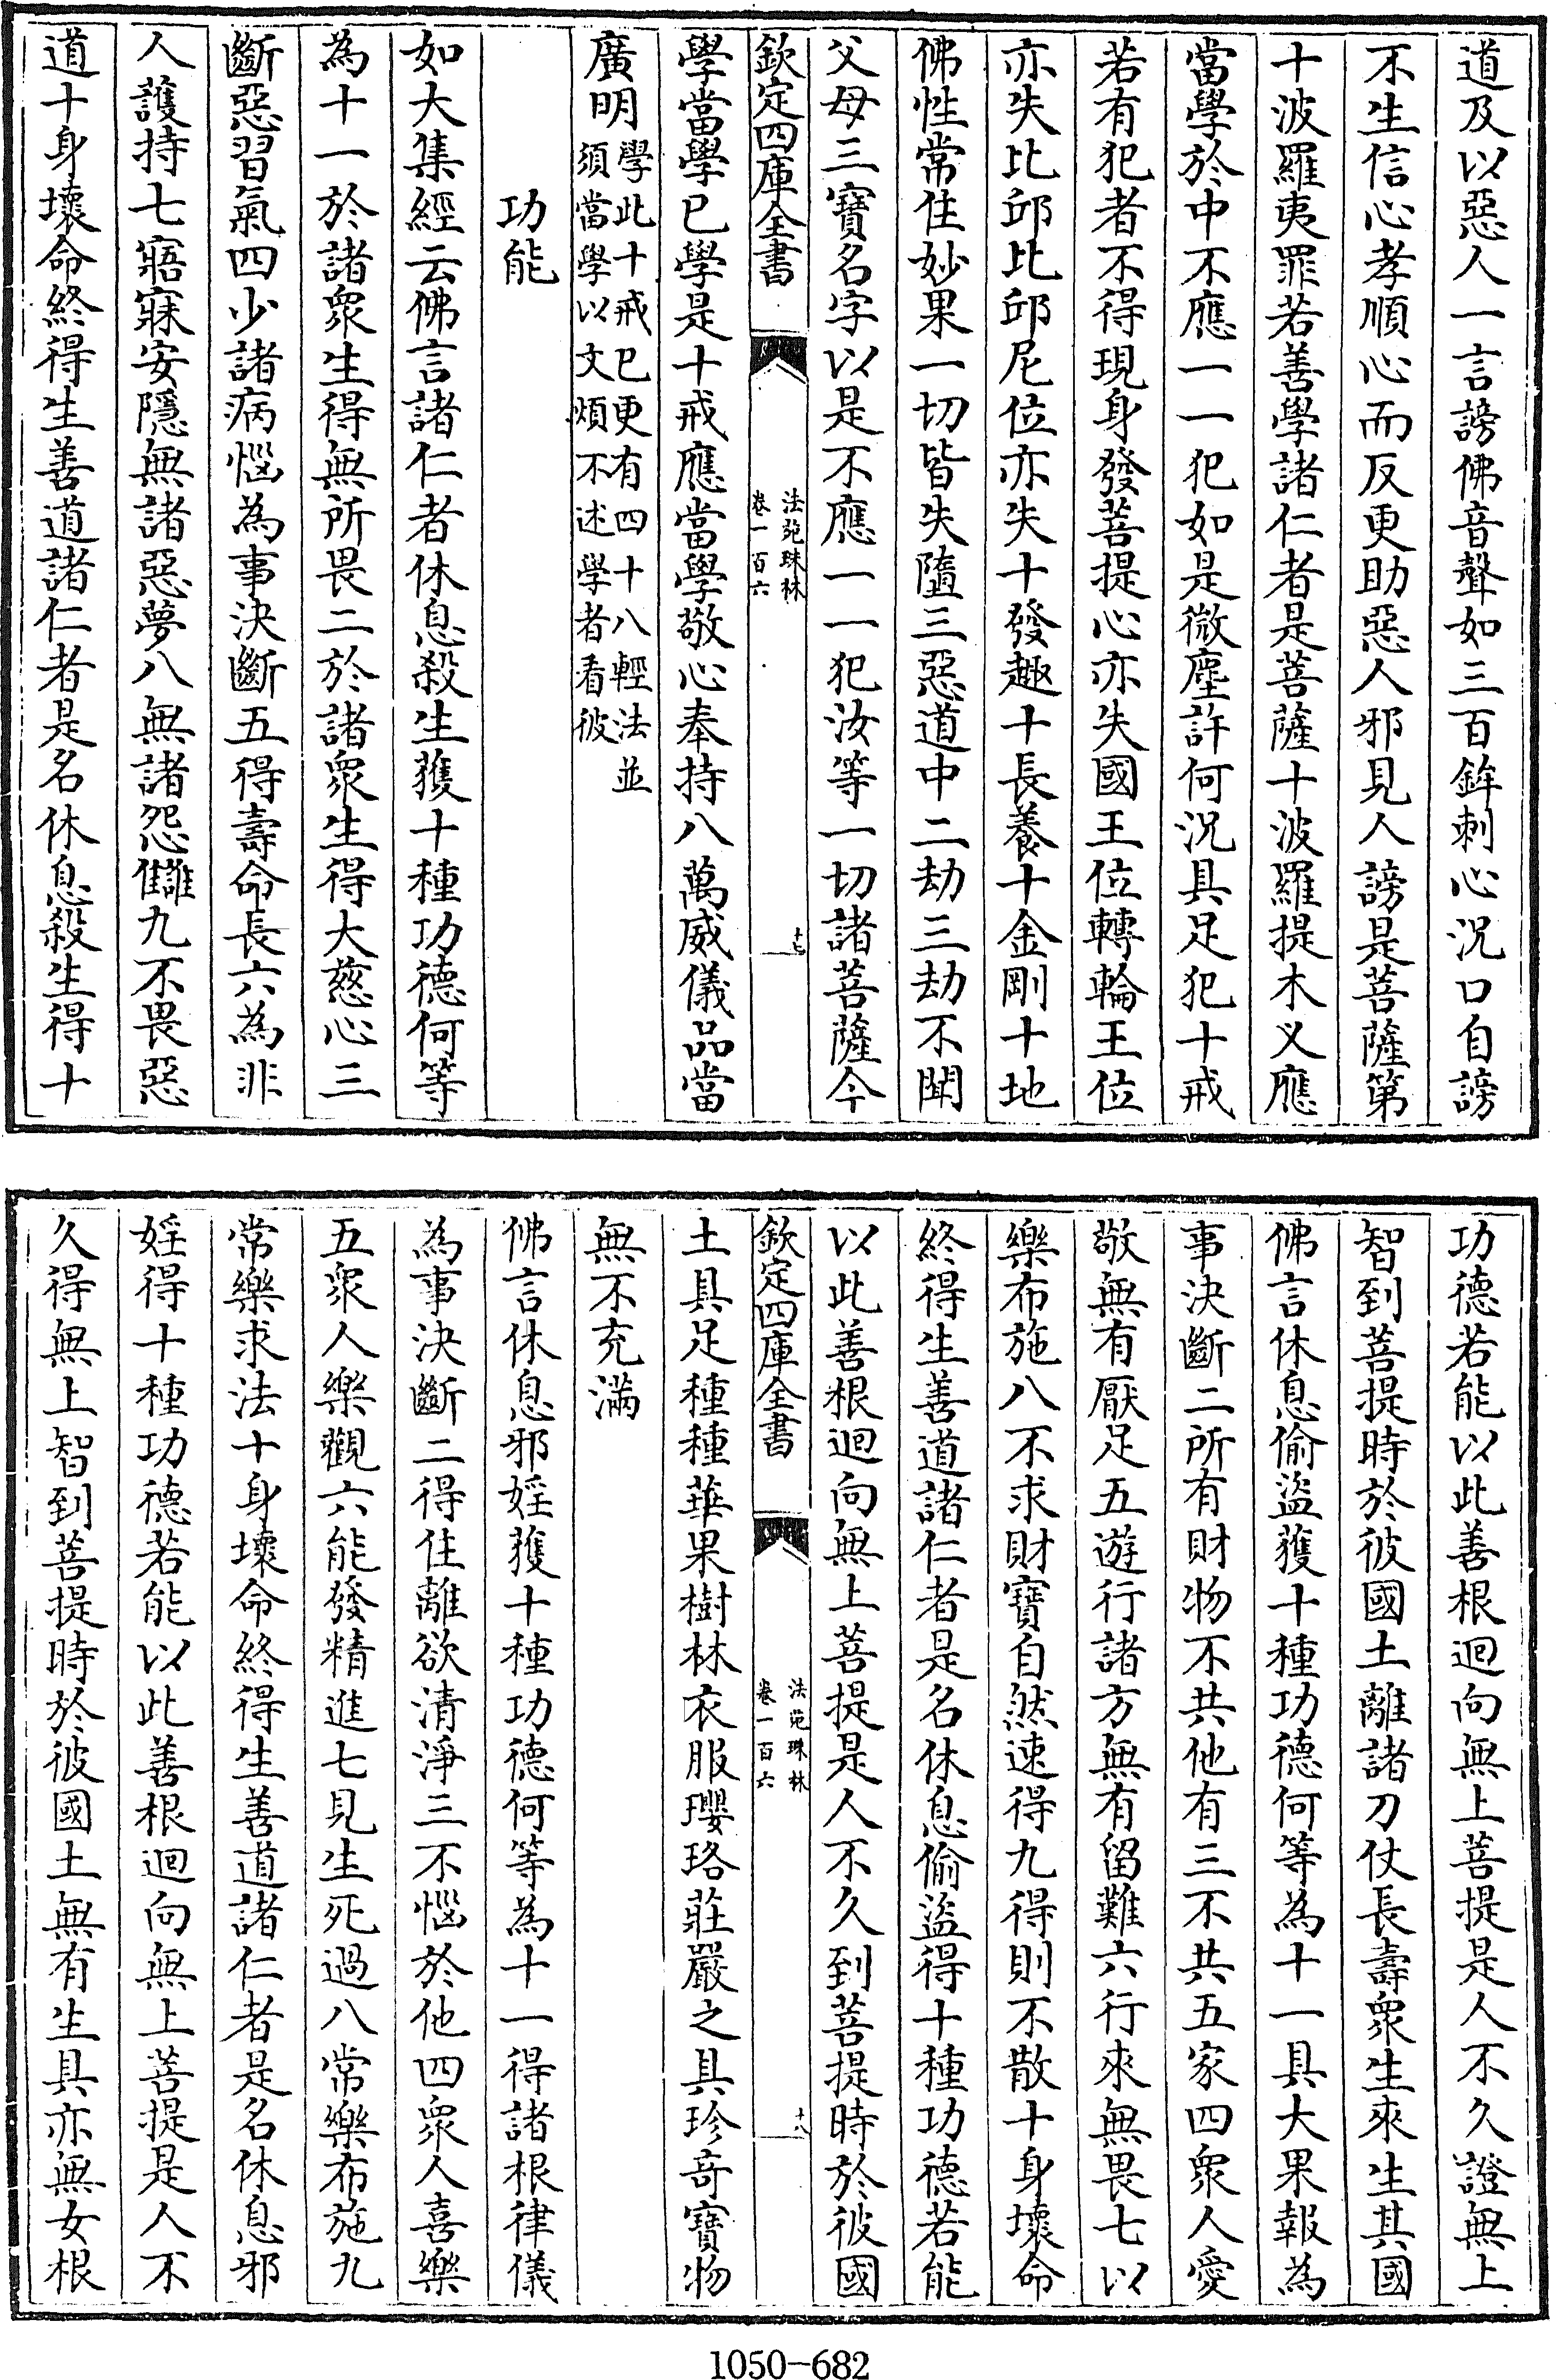 道及以惡人一言謗佛音聲如三百鉾刺心況口自謗
不生信心孝順心而反更助惡人邪見人謗是菩薩第
十波羅夷罪若善學諸仁者是菩薩十波羅提木义應
當學於中不應一一犯如是微塵許何況具足犯十戒
若有犯者不得現身發菩提心亦失國王位轉輪王位
亦失比邱比邱尼位亦失十發趣十長養十金剛十地
佛性常住妙果一切皆失墮三惡道中二劫三劫不聞
父母三寶名字以是不應一一犯汝等一切諸菩薩今
欽定四庫全書
法苑珠林
卷一百六
十七
學當學已學是十戒應當學敬心奉持八萬威儀品當
廣明學此十戒已更有四十八輕法並
須當學以文煩不述學者看彼
功能
如大集經云佛言諸仁者休息殺生獲十種功德何等
為十一於諸衆生得無所畏二於諸衆生得大慈心三
斷惡習氣四少諸病惱為事決斷五得壽命長六為非
人護持七寤寐安隱無諸惡夢八無諸怨讎九不畏惡
道十身壞命終得生善道諸仁者是名休息殺生得十
功德若能以此善根迴向無上菩提是人不久證無上
智到菩提時於彼國土離諸刀仗長壽衆生來生其國
佛言休息偷盜獲十種功德何等為十一具大果報為
事決斷二所有財物不共他有三不共五家四衆人愛
敬無有厭足五遊行諸方無有留難六行來無畏七以
樂布施八不求財寶自然速得九得則不散十身壞命
終得生善道諸仁者是名休息偷盜得十種功德若能
以此善根迴向無上菩提是人不久到菩提時於彼國
欽定四庫全書
法苑珠林
卷一百六
十八
土具足種種華果樹林衣服瓔珞莊嚴之具珍奇寶物
無不充滿
佛言休息邪婬獲十種功德何等為十一得諸根律儀
為事決斷二得住離欲清淨三不惱於他四衆人喜樂
五衆人樂觀六能發精進七見生死過八常樂布施九
常樂求法十身壞命終得生善道諸仁者是名休息邪
婬得十種功德若能以此善根迴向無上菩提是人不
久得無上智到菩提時於彼國土無有生具亦無女根
1050-682